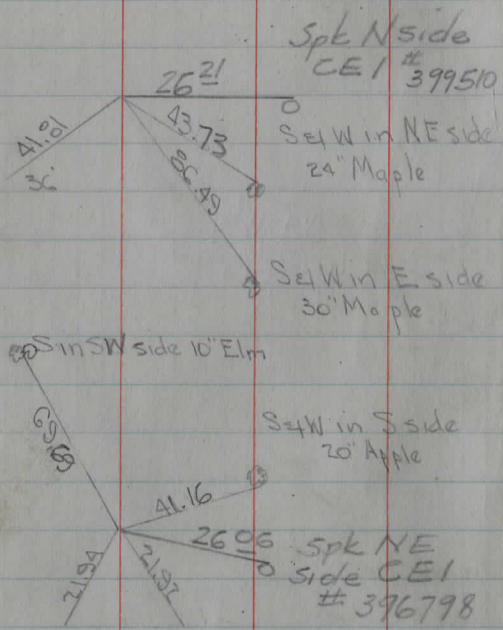 Spk N side
CEI # 399510
26 21
41.81
36
43.73
S&W in NE side
24" Maple
86.49
S&W in E side
30" Maple
S in SW side 10" Elm
69.69
S&W in S side
20" Apple
41.16
26 06
Spk NE
side CEI
# 396798
21.94
21.97